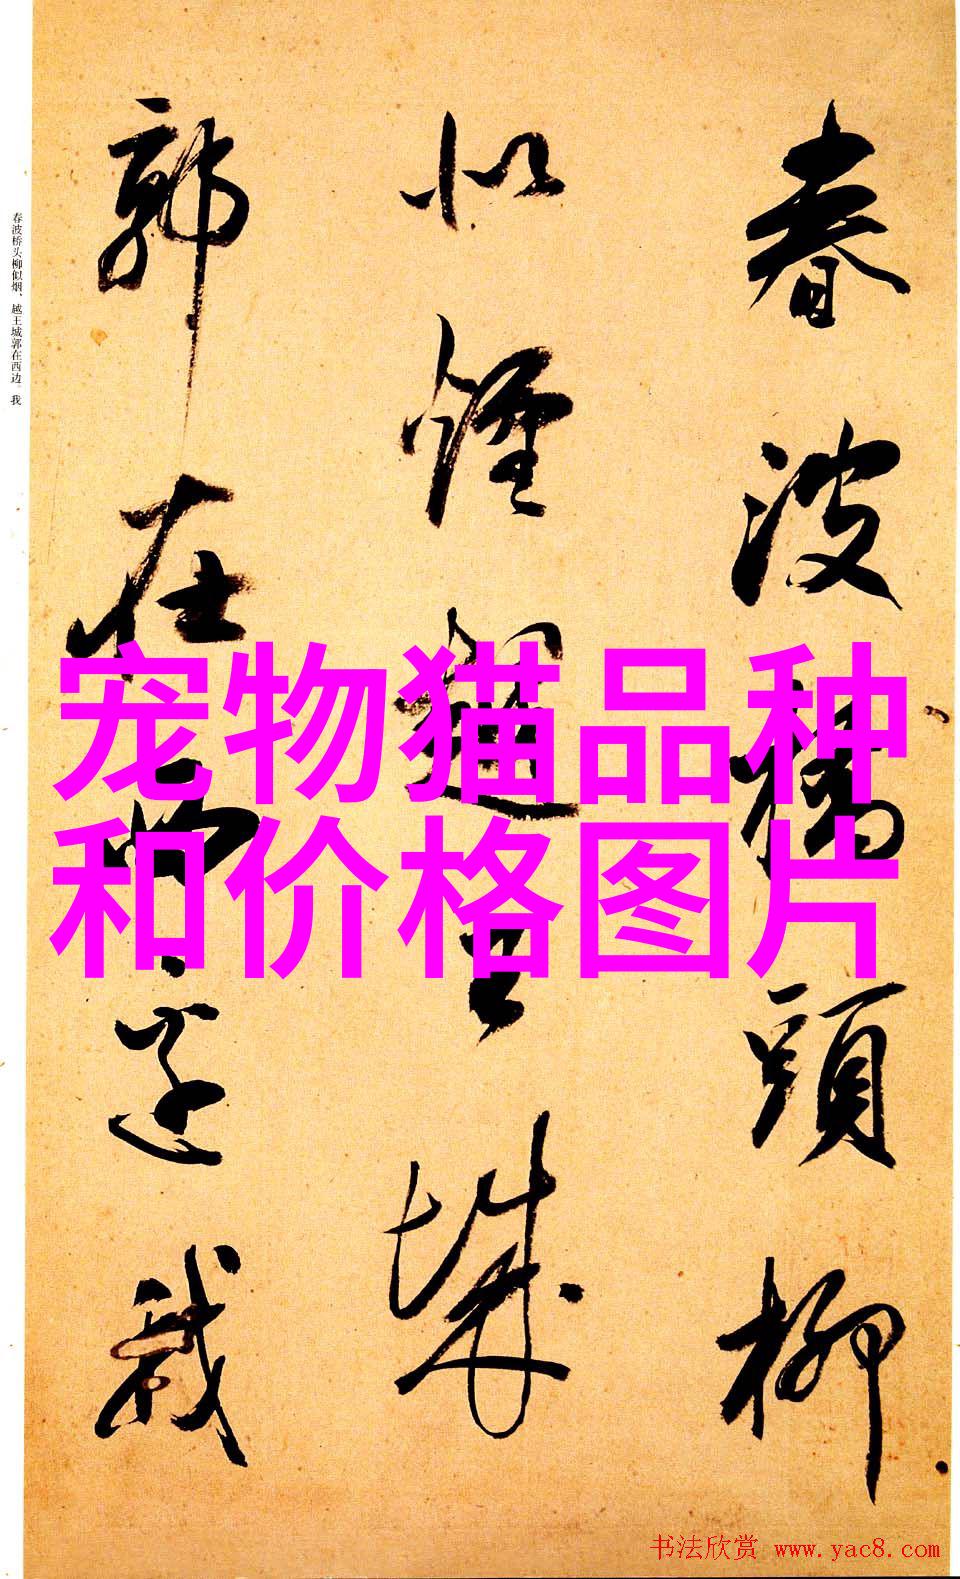 春波橋頭柳
似煙越王城
郭在西邊我
春波桥头柳似烟，越王城郭在西边。我
宠物猫品种
和价格图片
书法欣赏 www.yac8.com